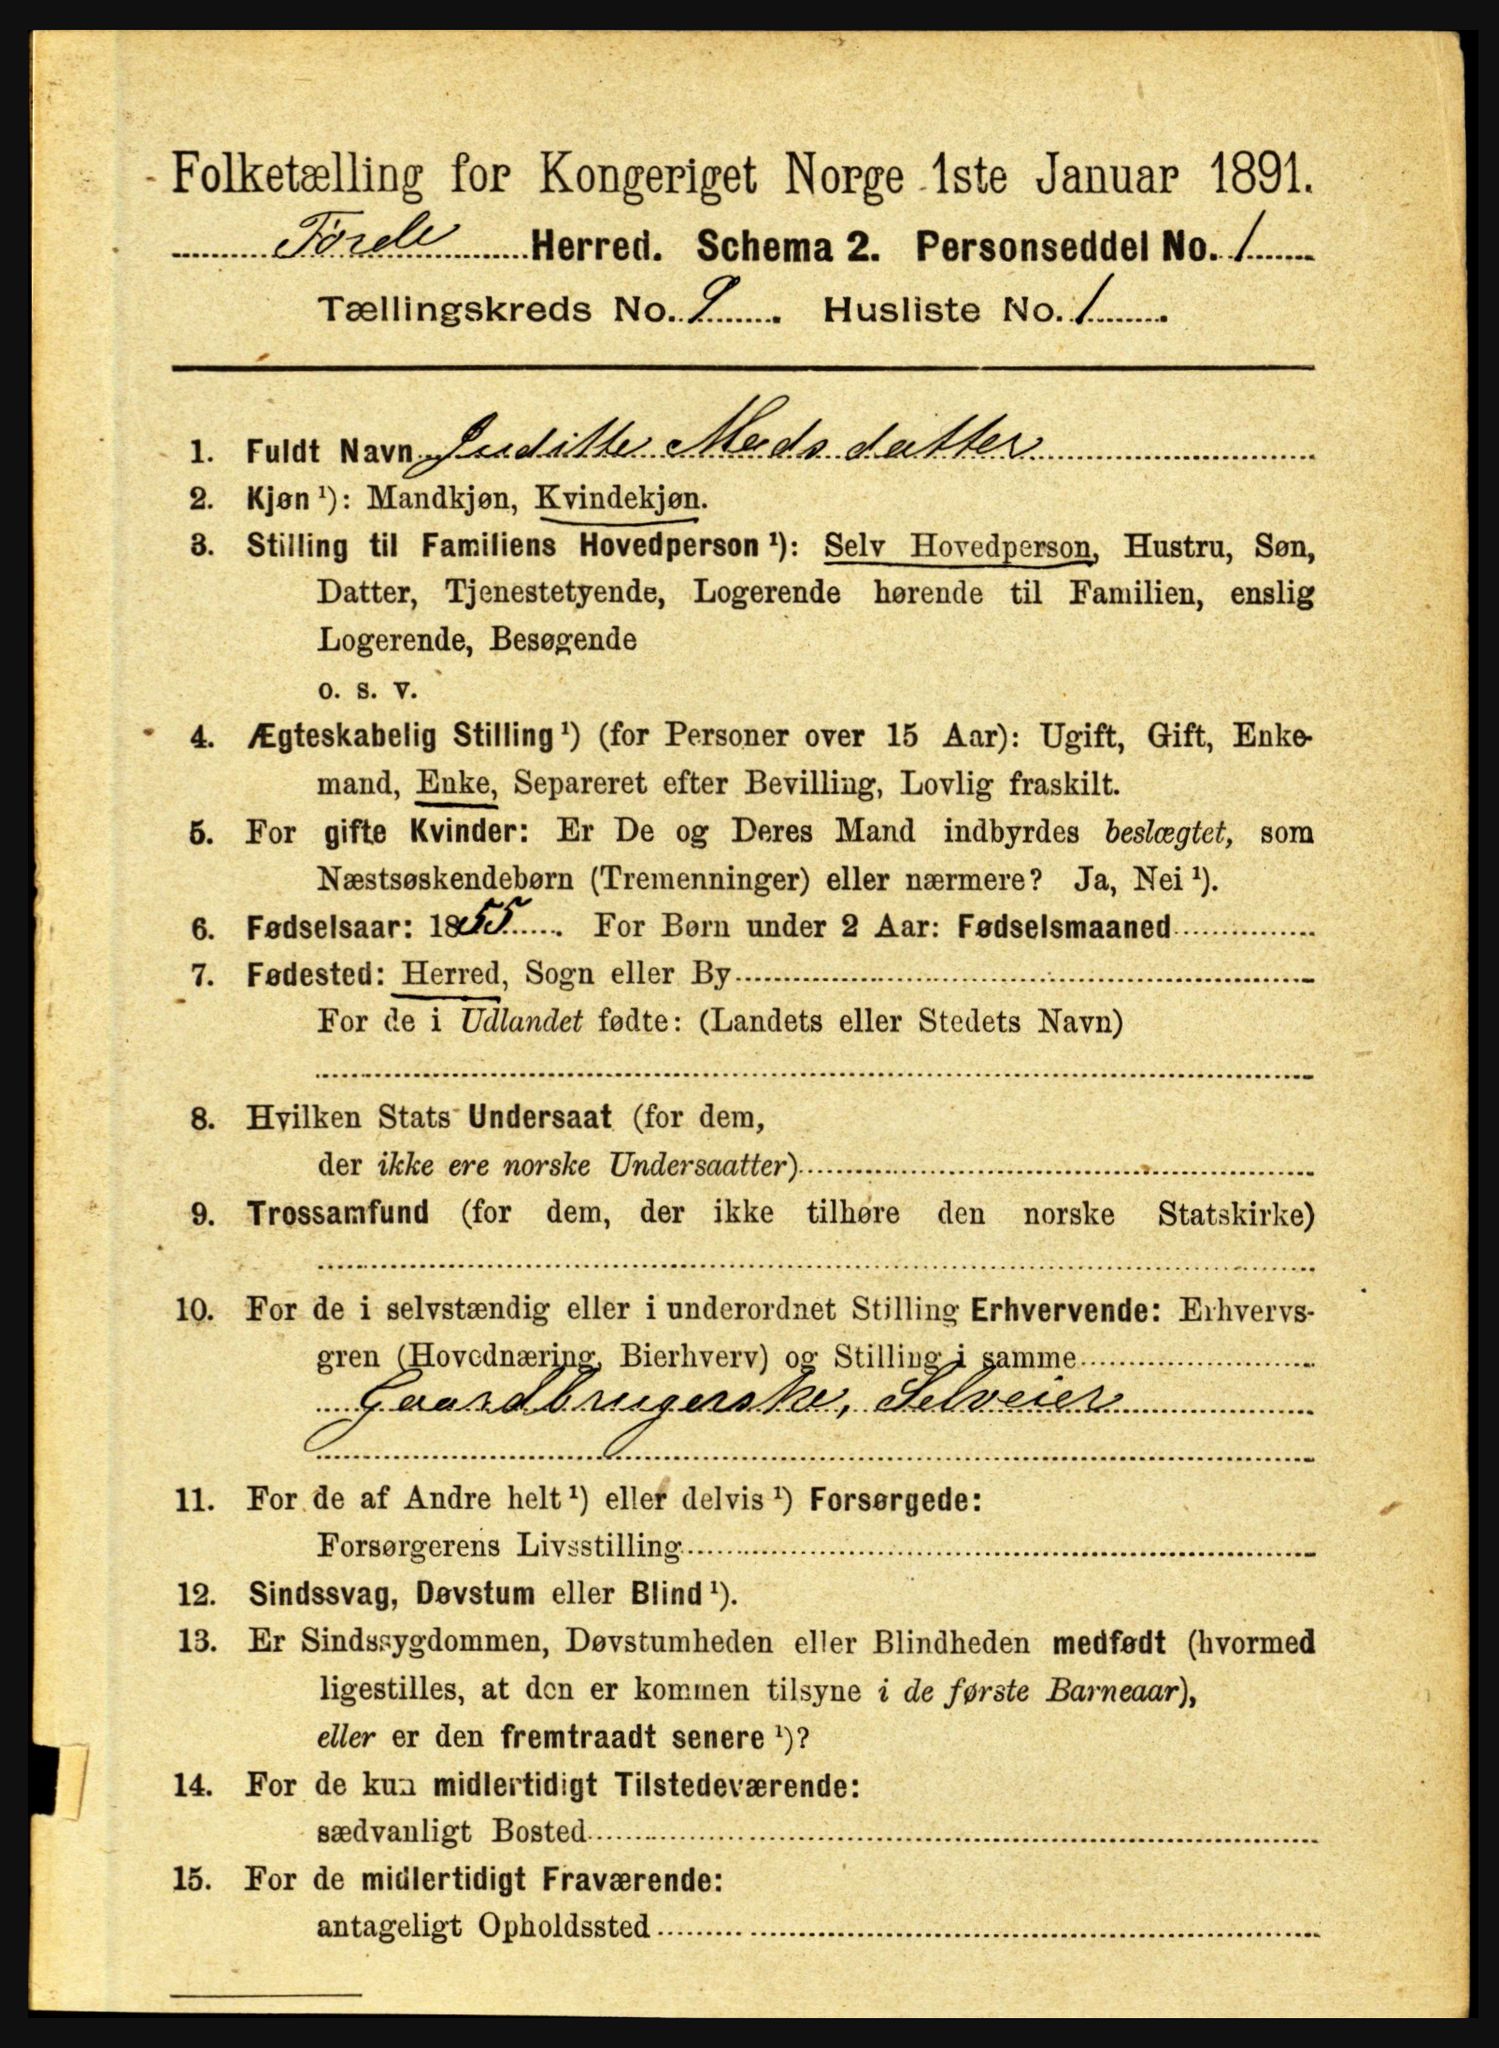 Folketælling for Kongeriget Norge 1ste Januar 1891.
Førde Herred. Schema 2. Personseddel No. 1
Tællingskreds No. 9. Husliste No. 1.
1. Fuldt Navn Juditte Mads datter
2. Kjøn ¹): Mandkjøn, Kvindekjøn.
3. Stilling til Familiens Hovedperson ¹): Selv Hovedperson, Hustru, Søn,
Datter, Tjenestetyende, Logerende hørende til Familien, enslig
Logerende, Besøgende
o. s. v.
4. Ægteskabelig Stilling ¹) (for Personer over 15 Aar): Ugift, Gift, Enke-
mand, Enke, Separeret efter Bevilling, Lovlig fraskilt.
5. For gifte Kvinder: Er De og Deres Mand indbyrdes beslægtet, som
Næstsøskendebørn (Tremenninger) eller nærmere? Ja, Nei ¹).
6. Fødselsaar: 1855. For Børn under 2 Aar: Fødselsmaaned
7. Fødested: Herred, Sogn eller By
For de i Udlandet fødte: (Landets eller Stedets Navn)
8. Hvilken Stats Undersaat (for dem,
der ikke ere norske Undersaatter)
9. Trossamfund (for dem, der ikke tilhøre den norske Statskirke)
10. For de i selvstændig eller i underordnet Stilling Erhvervende: Erhvervs-
gren (Hovednæring, Bierhverv) og Stilling i samme
Gaardbrugerske, Selveier
11. For de af Andre helt ¹) eller delvis ¹) Forsørgede:
Forsørgerens Livsstilling
12. Sindssvag, Døvstum eller Blind ¹).
13. Er Sindssygdommen, Døvstumheden eller Blindheden medfødt (hvormed
ligestilles, at den er kommen tilsyne i de første Barneaar),
eller er den fremtraadt senere ¹)?
14. For de kun midlertidigt Tilstedeværende:
sædvanligt Bosted
15. For de midlertidigt Fraværende:
antageligt Opholdssted